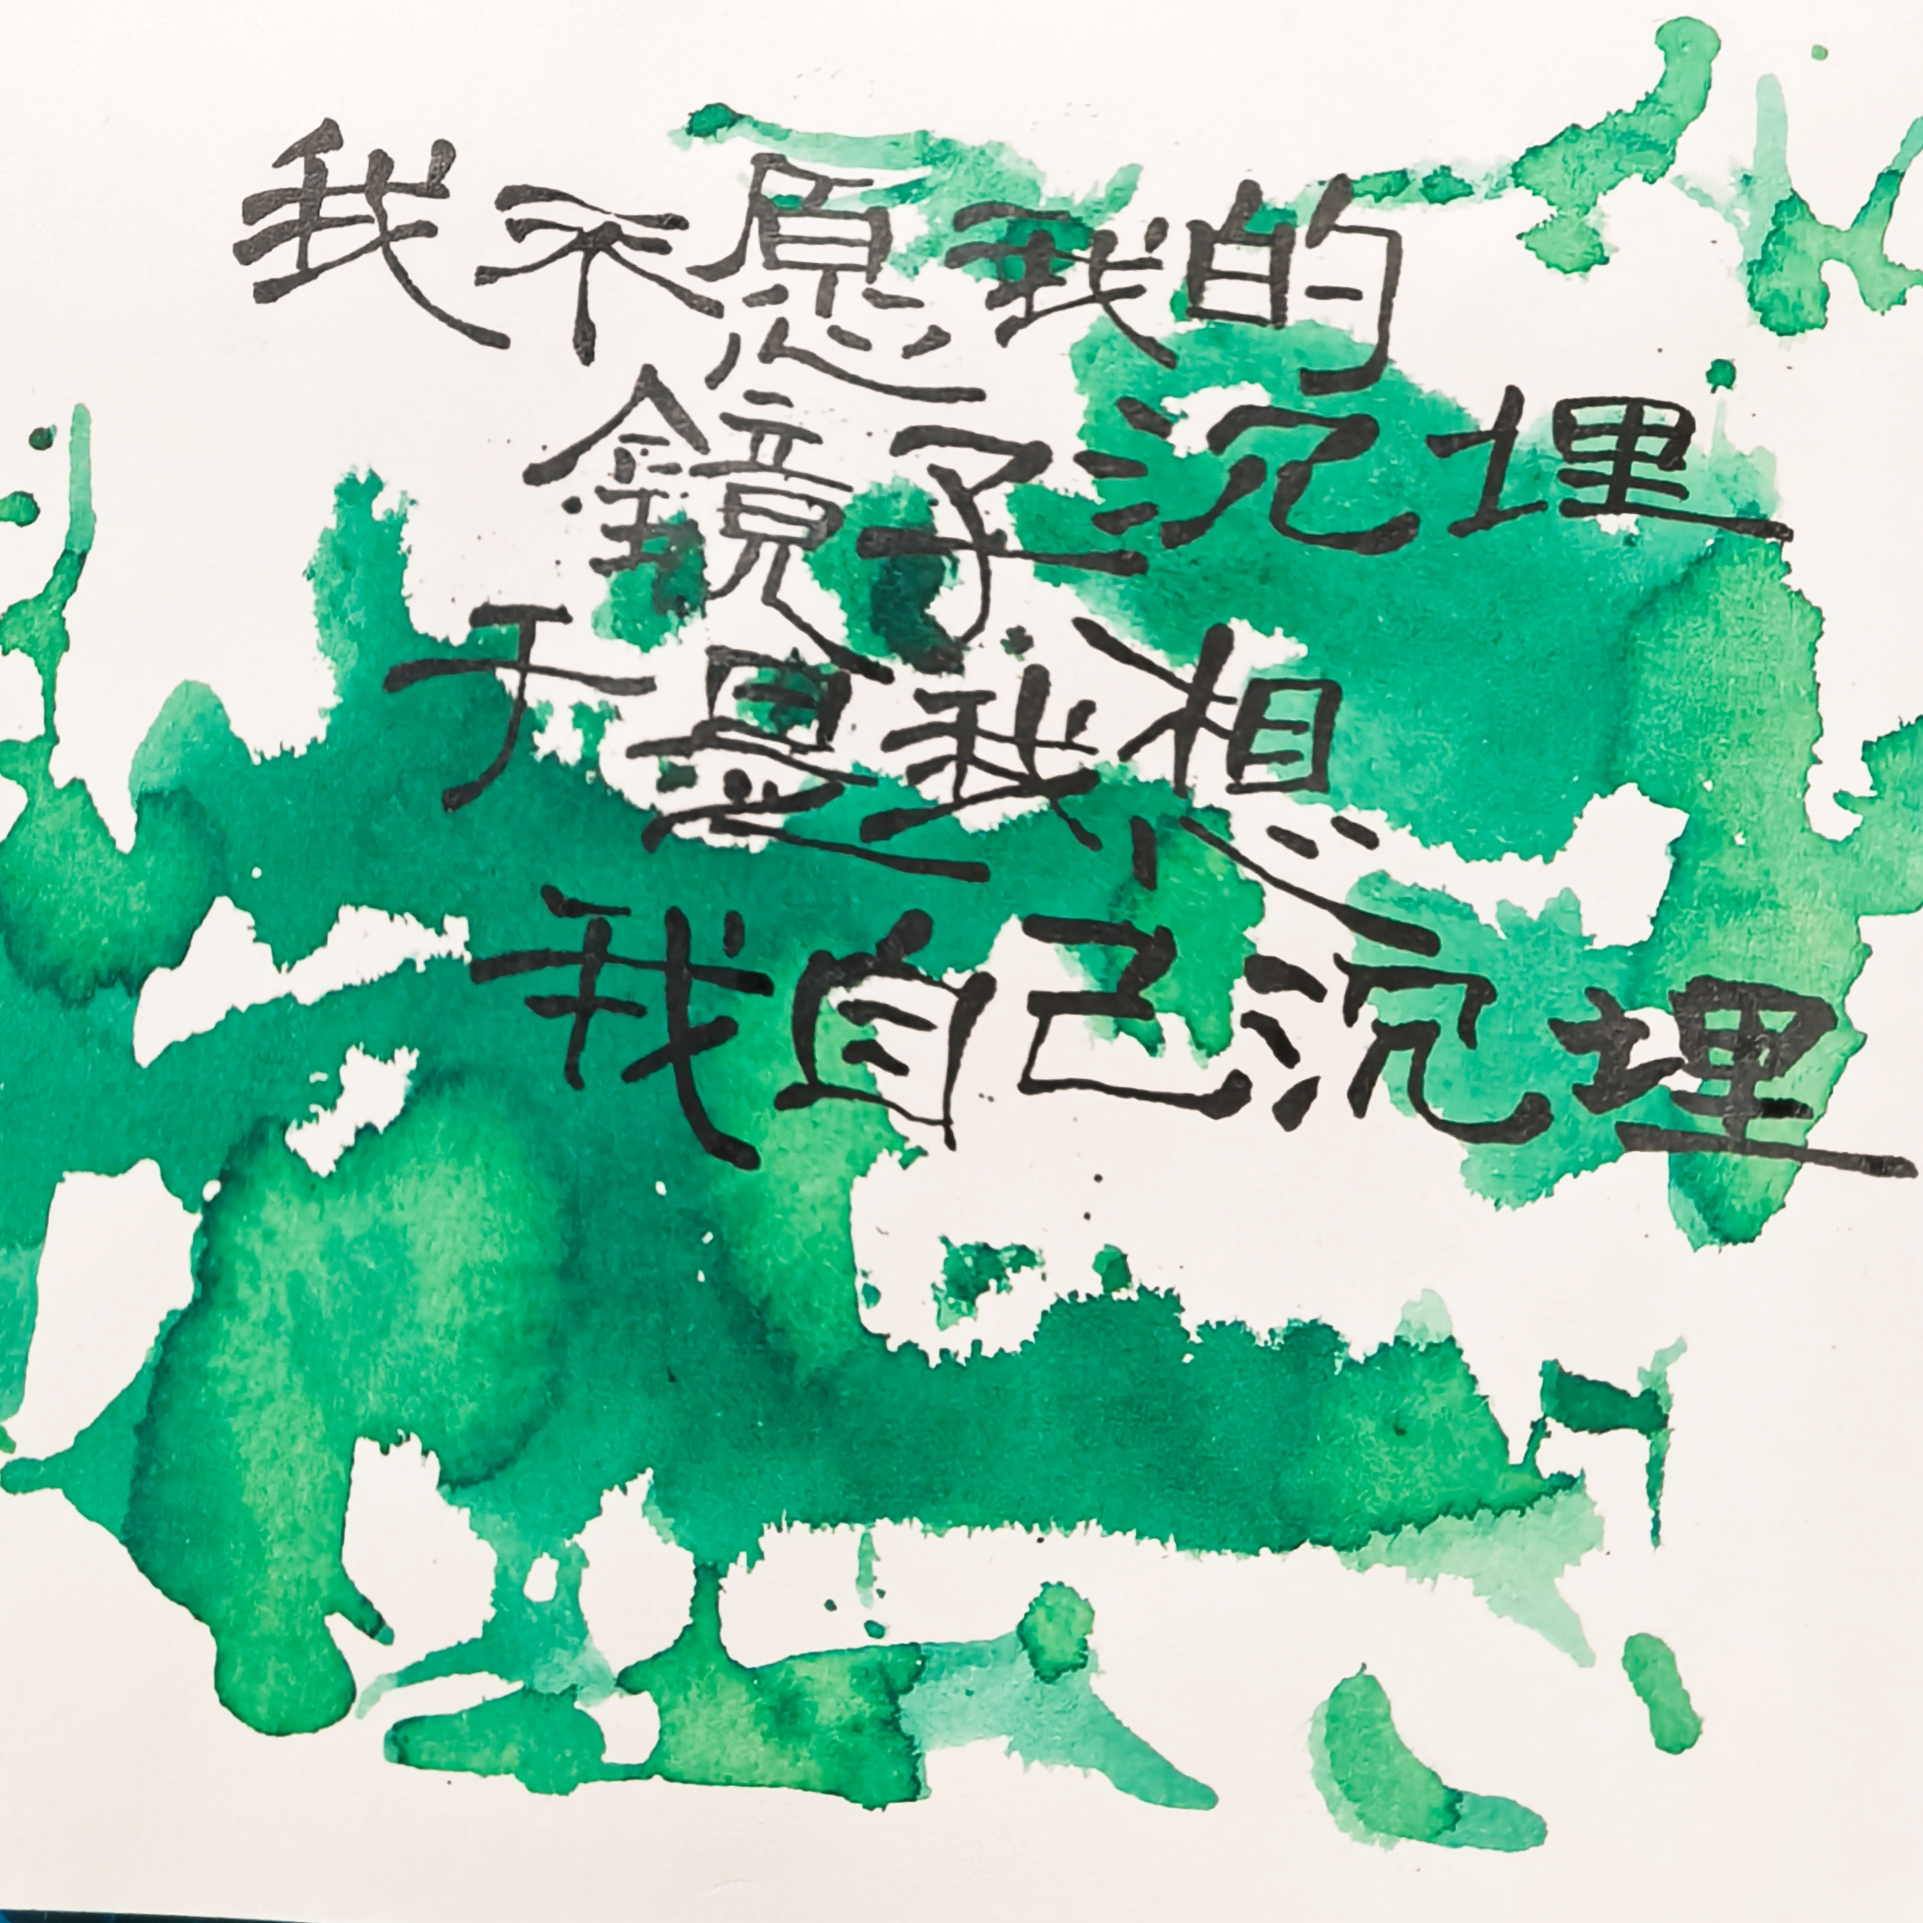 我不愿我的
鏡子沉埋
于是我想
我自己沉埋